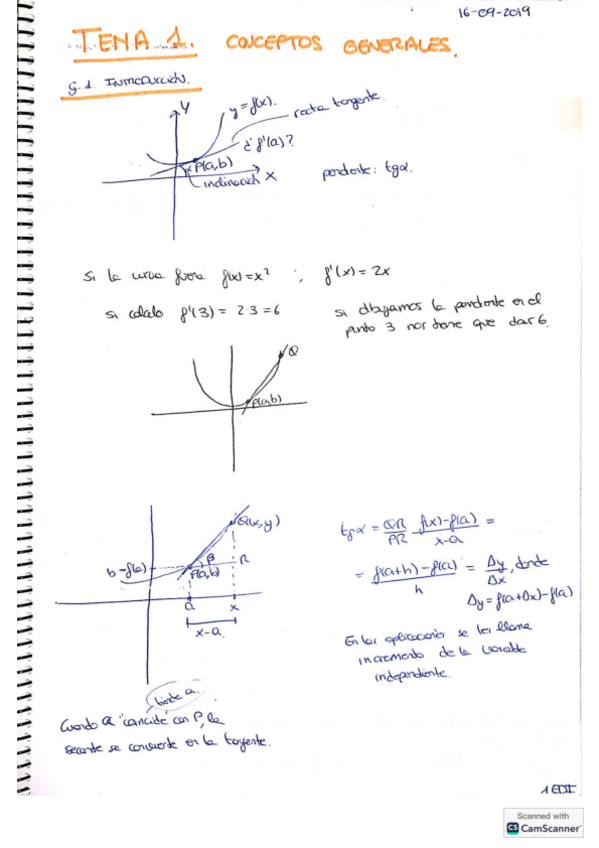 16-09-2019
TEMA 1. CONCEPTOS GENERALES.
§.1. INTRODUCCIÓN.
y
y=f(x).
recta tangente.
¿f'(a)?
P(a,b)
inclinación
x
pendiente: tgα.
Si la curva fuera f(x)=x² ; f'(x)=2x
si cálculo f'(3) = 2·3=6
si dibujamos la pendiente en el
punto 3 nos tiene que dar 6.
Q
P(a,b)
Q(x,y)
b=f(a)
β
R
P(a,b)
a
x
x-a
tgα = QR/PR = f(x)-f(a)/x-a =
= f(a+h)-f(a)/h = Δy/Δx, donde
Δy=f(a+Δx)-f(a)
En las aplicaciones se les llama
incremento de la variable
independiente.
tiende a.
Cuando Q "coincide" con P, la
secante se convierte en la tangente.
1 EDI
Scanned with
CS CamScanner